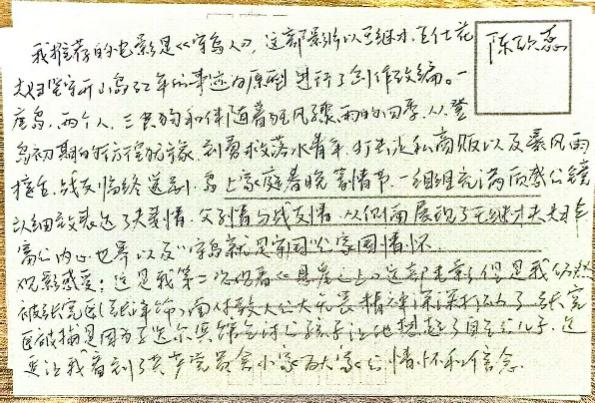 我推荐的电影是《守岛人》，这部影片以王继才、王仕花
夫妇坚守开山岛32年的事迹为原型进行了创作改编。一
座岛，两个人，三只狗和伴随着狂风骤雨的四季，从登
岛初期的到勇救落水青年，打击走私商贩以及暴风雨
战友临终送别，岛上家庭春晚等情节，一组组充满质感的镜
以细致表达了夫妻情、父子情与战友情，从侧面展现了王继才夫妇
富的内心世界以及“守岛就是守国”的家国情怀。
观影感受：这是我第二次观看《悬崖之上》这部电影但是我仍然
被张宪臣（张译饰）的大公无畏精神深深折服了。张宪
臣被捕是因为孩子让他想起了自己的儿子，这
更让我看到了共产党员舍小家为大家的情怀和信念。
陈欣蕊